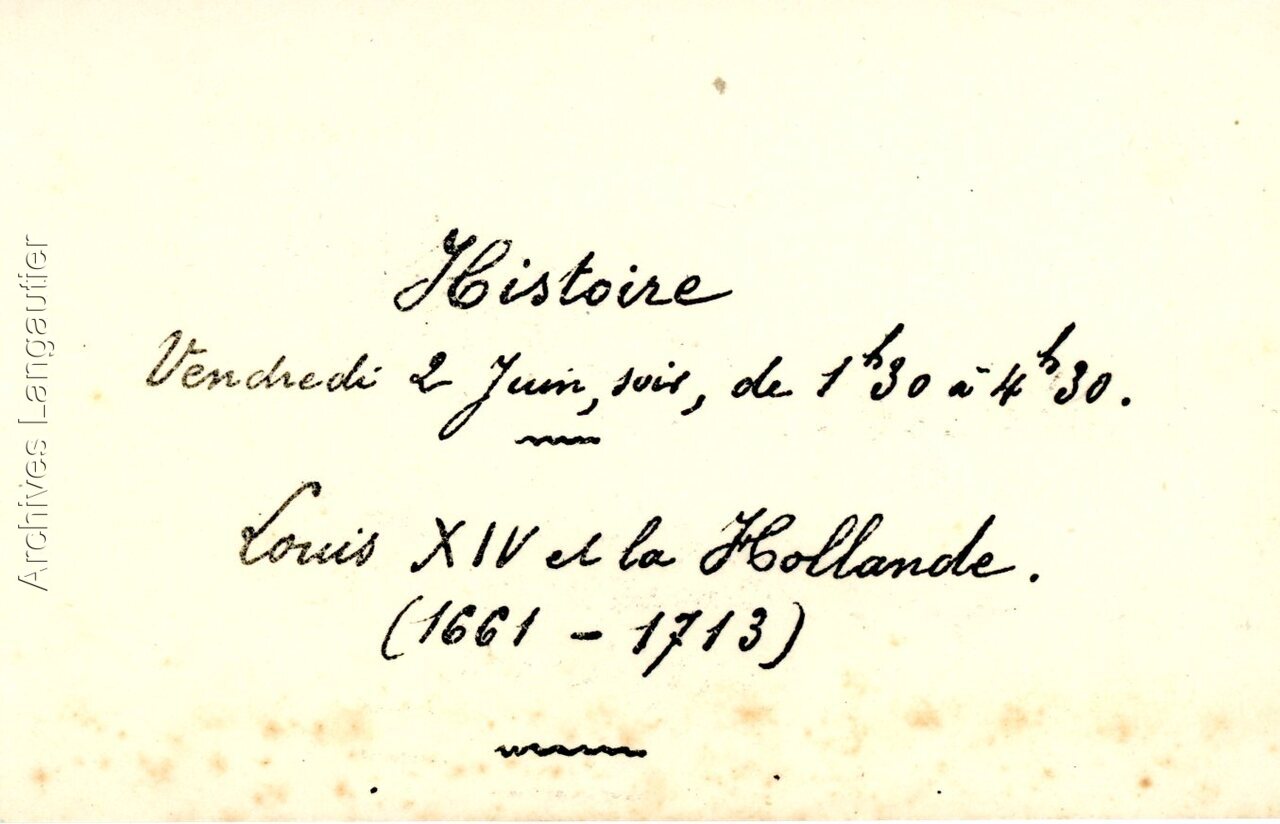 Histoire
Vendredi 2 Juin, soir, de 1h30 à 4h30.
Louis XIV et la Hollande.
(1661 - 1713)
Archives Langautier